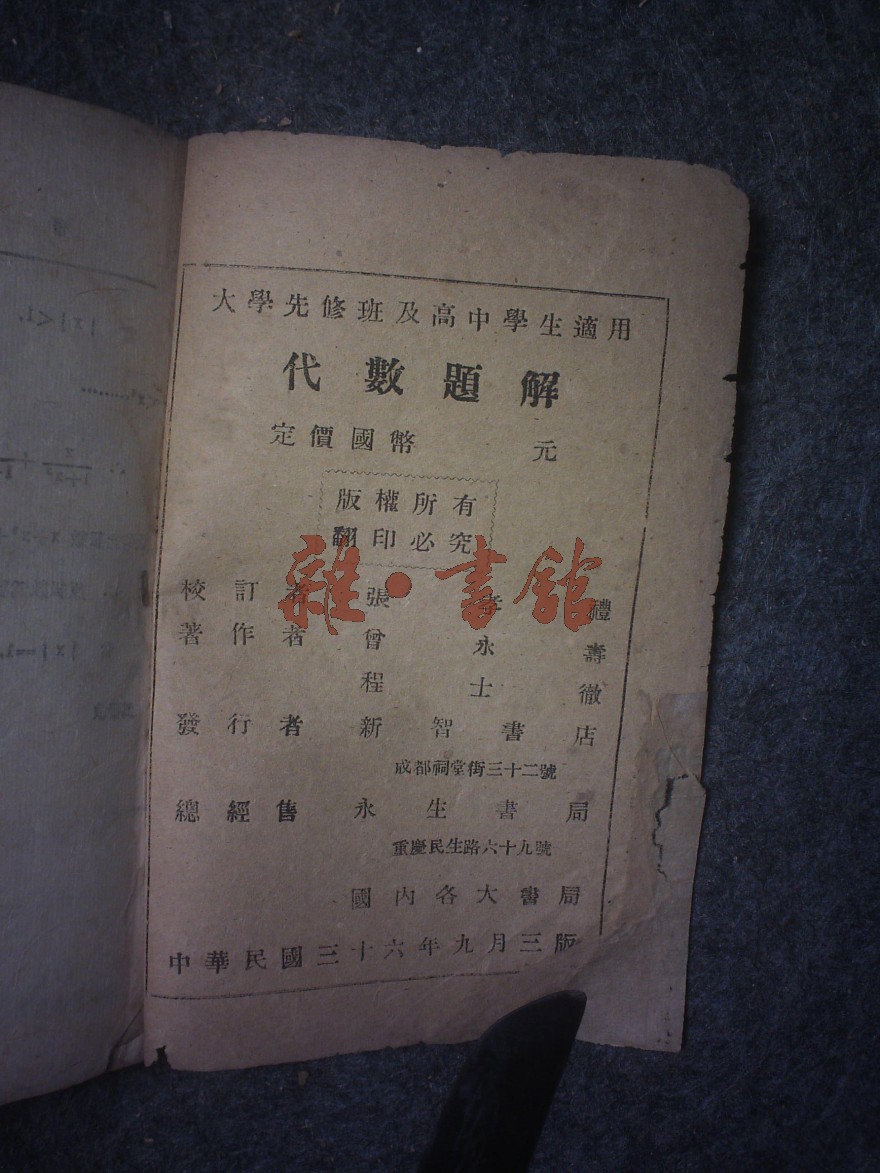 大學先修班及高中學生適用
代數題解
定價國幣 元
版權所有
翻印必究
雜·書館
校訂者 張孝禮
著作者 曾永壽
程士徹
發行者 新智書店
成都祠堂街三十二號
總經售 永生書局
重慶民生路六十九號
國內各大書局
中華民國三十六年九月三版
|x|<1,
|x|=1,